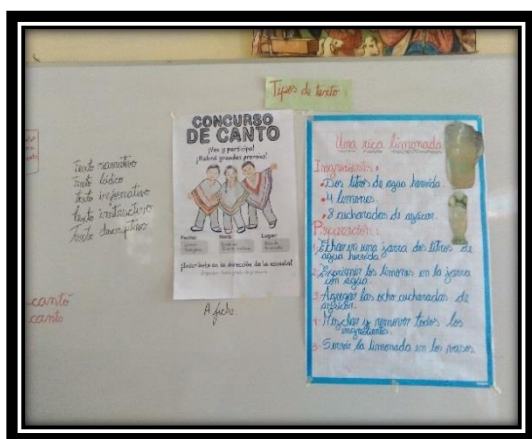 Tipos de texto
Texto narrativo
Texto lúdico
texto informativo
texto instructivo
Texto descriptivo
canto
canto
CONCURSO
DE CANTO
¡Ven y participa!
¡Habrá grandes premios!
Fecha:
Hora:
Lugar:
¡Inscríbete en la dirección de la escuela!
Afiche.
Una rica limonada
Ingredientes:
•Dos litros de agua hervida.
•4 limones.
•8 cucharadas de azúcar.
Preparación:
1. Echar en una jarra dos litros de
agua hervida.
2. Exprimir los limones en la jarra
con agua.
3. Agregar las ocho cucharadas de
azúcar.
4. Mezclar y remover todos los
ingredientes.
5. Servir la limonada en los vasos